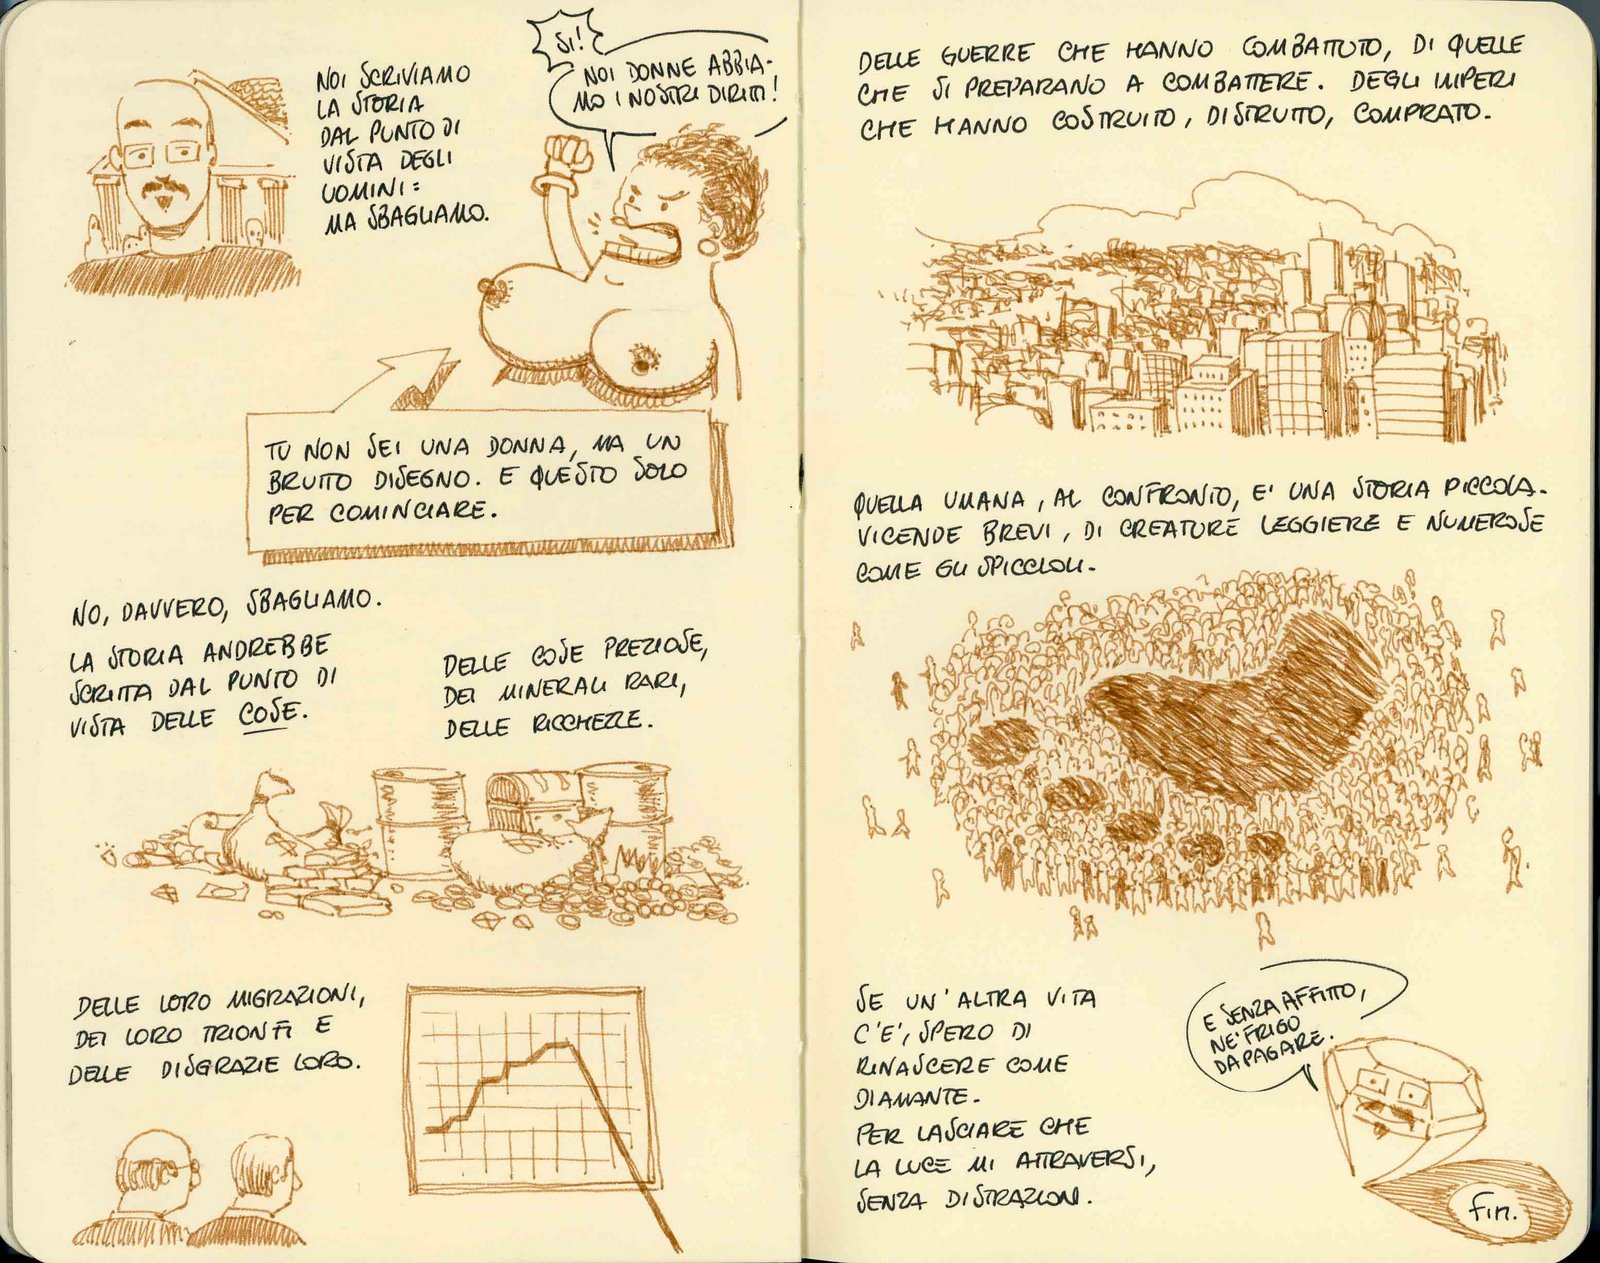 NOI SCRIVIAMO
LA STORIA
DAL PUNTO DI
VISTA DEGLI
UOMINI:
MA SBAGLIAMO.
SI!
NOI DONNE ABBIA-
MO I NOSTRI DIRITTI!
TU NON SEI UNA DONNA, MA UN
BRUTTO DISEGNO. E QUESTO SOLO
PER COMINCIARE.
NO, DAVVERO, SBAGLIAMO.
LA STORIA ANDREBBE
SCRITTA DAL PUNTO DI
VISTA DELLE COSE.
DELLE COSE PREZIOSE,
DEI MINERALI RARI,
DELLE RICCHEZZE.
DELLE LORO MIGRAZIONI,
DEI LORO TRIONFI E
DELLE DISGRAZIE LORO.
DELLE GUERRE CHE HANNO COMBATTUTO, DI QUELLE
CHE SI PREPARANO A COMBATTERE. DEGLI IMPERI
CHE HANNO COSTRUITO, DISTRUTTO, COMPRATO.
QUELLA UMANA, AL CONFRONTO, E' UNA STORIA PICCOLA.
VICENDE BREVI, DI CREATURE LEGGIERE E NUMEROSE
COME GLI SPICCIOLI.
SE UN'ALTRA VITA
C'E', SPERO DI
RINASCERE COME
DIAMANTE.
PER LASCIARE CHE
LA LUCE MI ATTRAVERSI,
SENZA DISTRAZIONI.
E SENZA AFFITTO,
NE' FRIGO
DA PAGARE.
Fin.